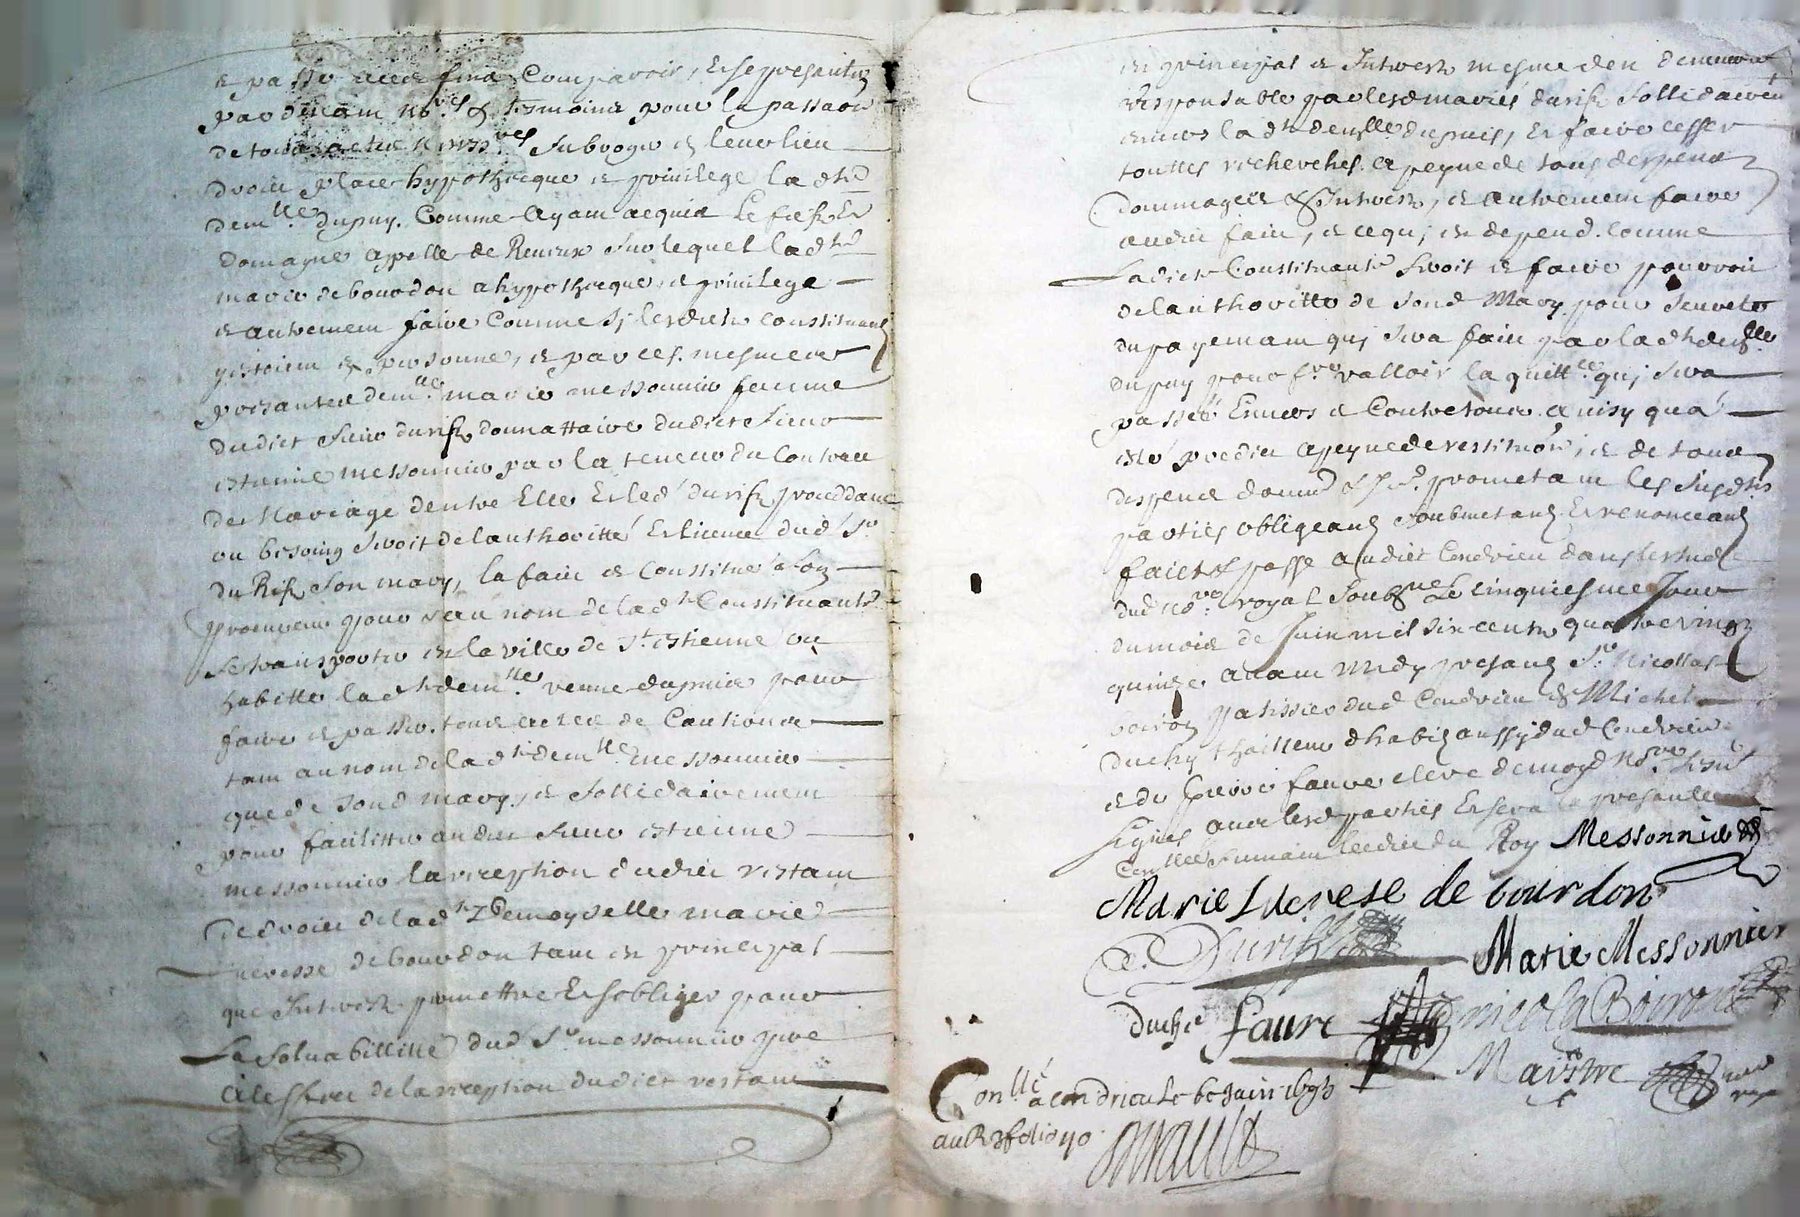 et passer a ceste fin Comparoir, Et se presenter
par devant no.res & tesmoins pour la passaon
de tous actes necess.res Subroger en leur lieu
droit place hypothecque et privilege la dte
dem.lle dupuy. Comme Ayant acquis Le fief Et
domayne Appelle de Revieux Sur lequel la dte
marie de bourdon a hypothecque, et privilege
et autrement faire Comme sy lesdicts constituants
y estoient en personne, et par ces mesmes
presantes dem.lle marie messonnier femme
dudict Sieur durif donnattaire dudict Sieur
estienne messonnier par la teneur du Contract
de Mariage dentre Elle Et led durif proceddant
ou besoing Seroit de lauthoritté Et licence dud Sr
du Rif Son mary, la faict et Constitué Son
procureur pour Et au nom de lad.te Constituante
Se transporter en la ville de St Estienne ou
habitte la d.te dem.lle veuve dupuis pour
faire et passer tous actes de Cautionne
tant au nom de la d.te dem.lle messonnier
que de Sond mary, et Sollidairement
pour facilitter audict Sieur estienne
messonnier la reception dudict restant
de droict de la d.te Demoyselle marie
lucresse de bourdon tant en principal
que Interest promettre Et sobliger pour
La Solvabillitté dud Sr messonnier pre
A leffect de la reception dudict restant
en principal et Interest mesme den demeurer
responsable par lesd mariés durif Sollidairement
envers la dte demlle dupuis, Et faire cesser
touttes recherches a peyne de tous despens
dommages & Interest, et autrement faire
audict faict, et ce quj en depend. Comme
Ladicte Constituante Seroit et faire pourroit
de lauthoritte de Sond Mary pour Seureté
du payement quj Sera faict par la dte demlle
dupuy pour fre valloir la quitt.ce quj Sera
passée Envers et Contre tous. ainsy qua
esté predict a peyne de restituon, et de tous
despens dom.es & Int. promettant les Susdtes
parties obligeant Soubmetant Et renonceant
faict & passe audict Condrieu dans lestude
dud no.re royal Soubz.né Le cinquiesme Jour
du mois de Juin mil six cents quatre vingt
quinze avant midy presant Sr Nicollas
boiron patissier dud Condrieu & Michel
duchy thailleur dhabitz aussy dud Condrieu
et de pierre faure clerc de moyd no.re Soub.né
Signés avec lesd parties Et sera la presante
Con.llée Suivant ledict du Roy Messonnier
Marie Lucrese de bourdon
Durif
Marie Messonnier
duché faure nicolas Boiron
Maistre
Con.llé a condrieu le 6e Juin 1695
au R 3 folio 40